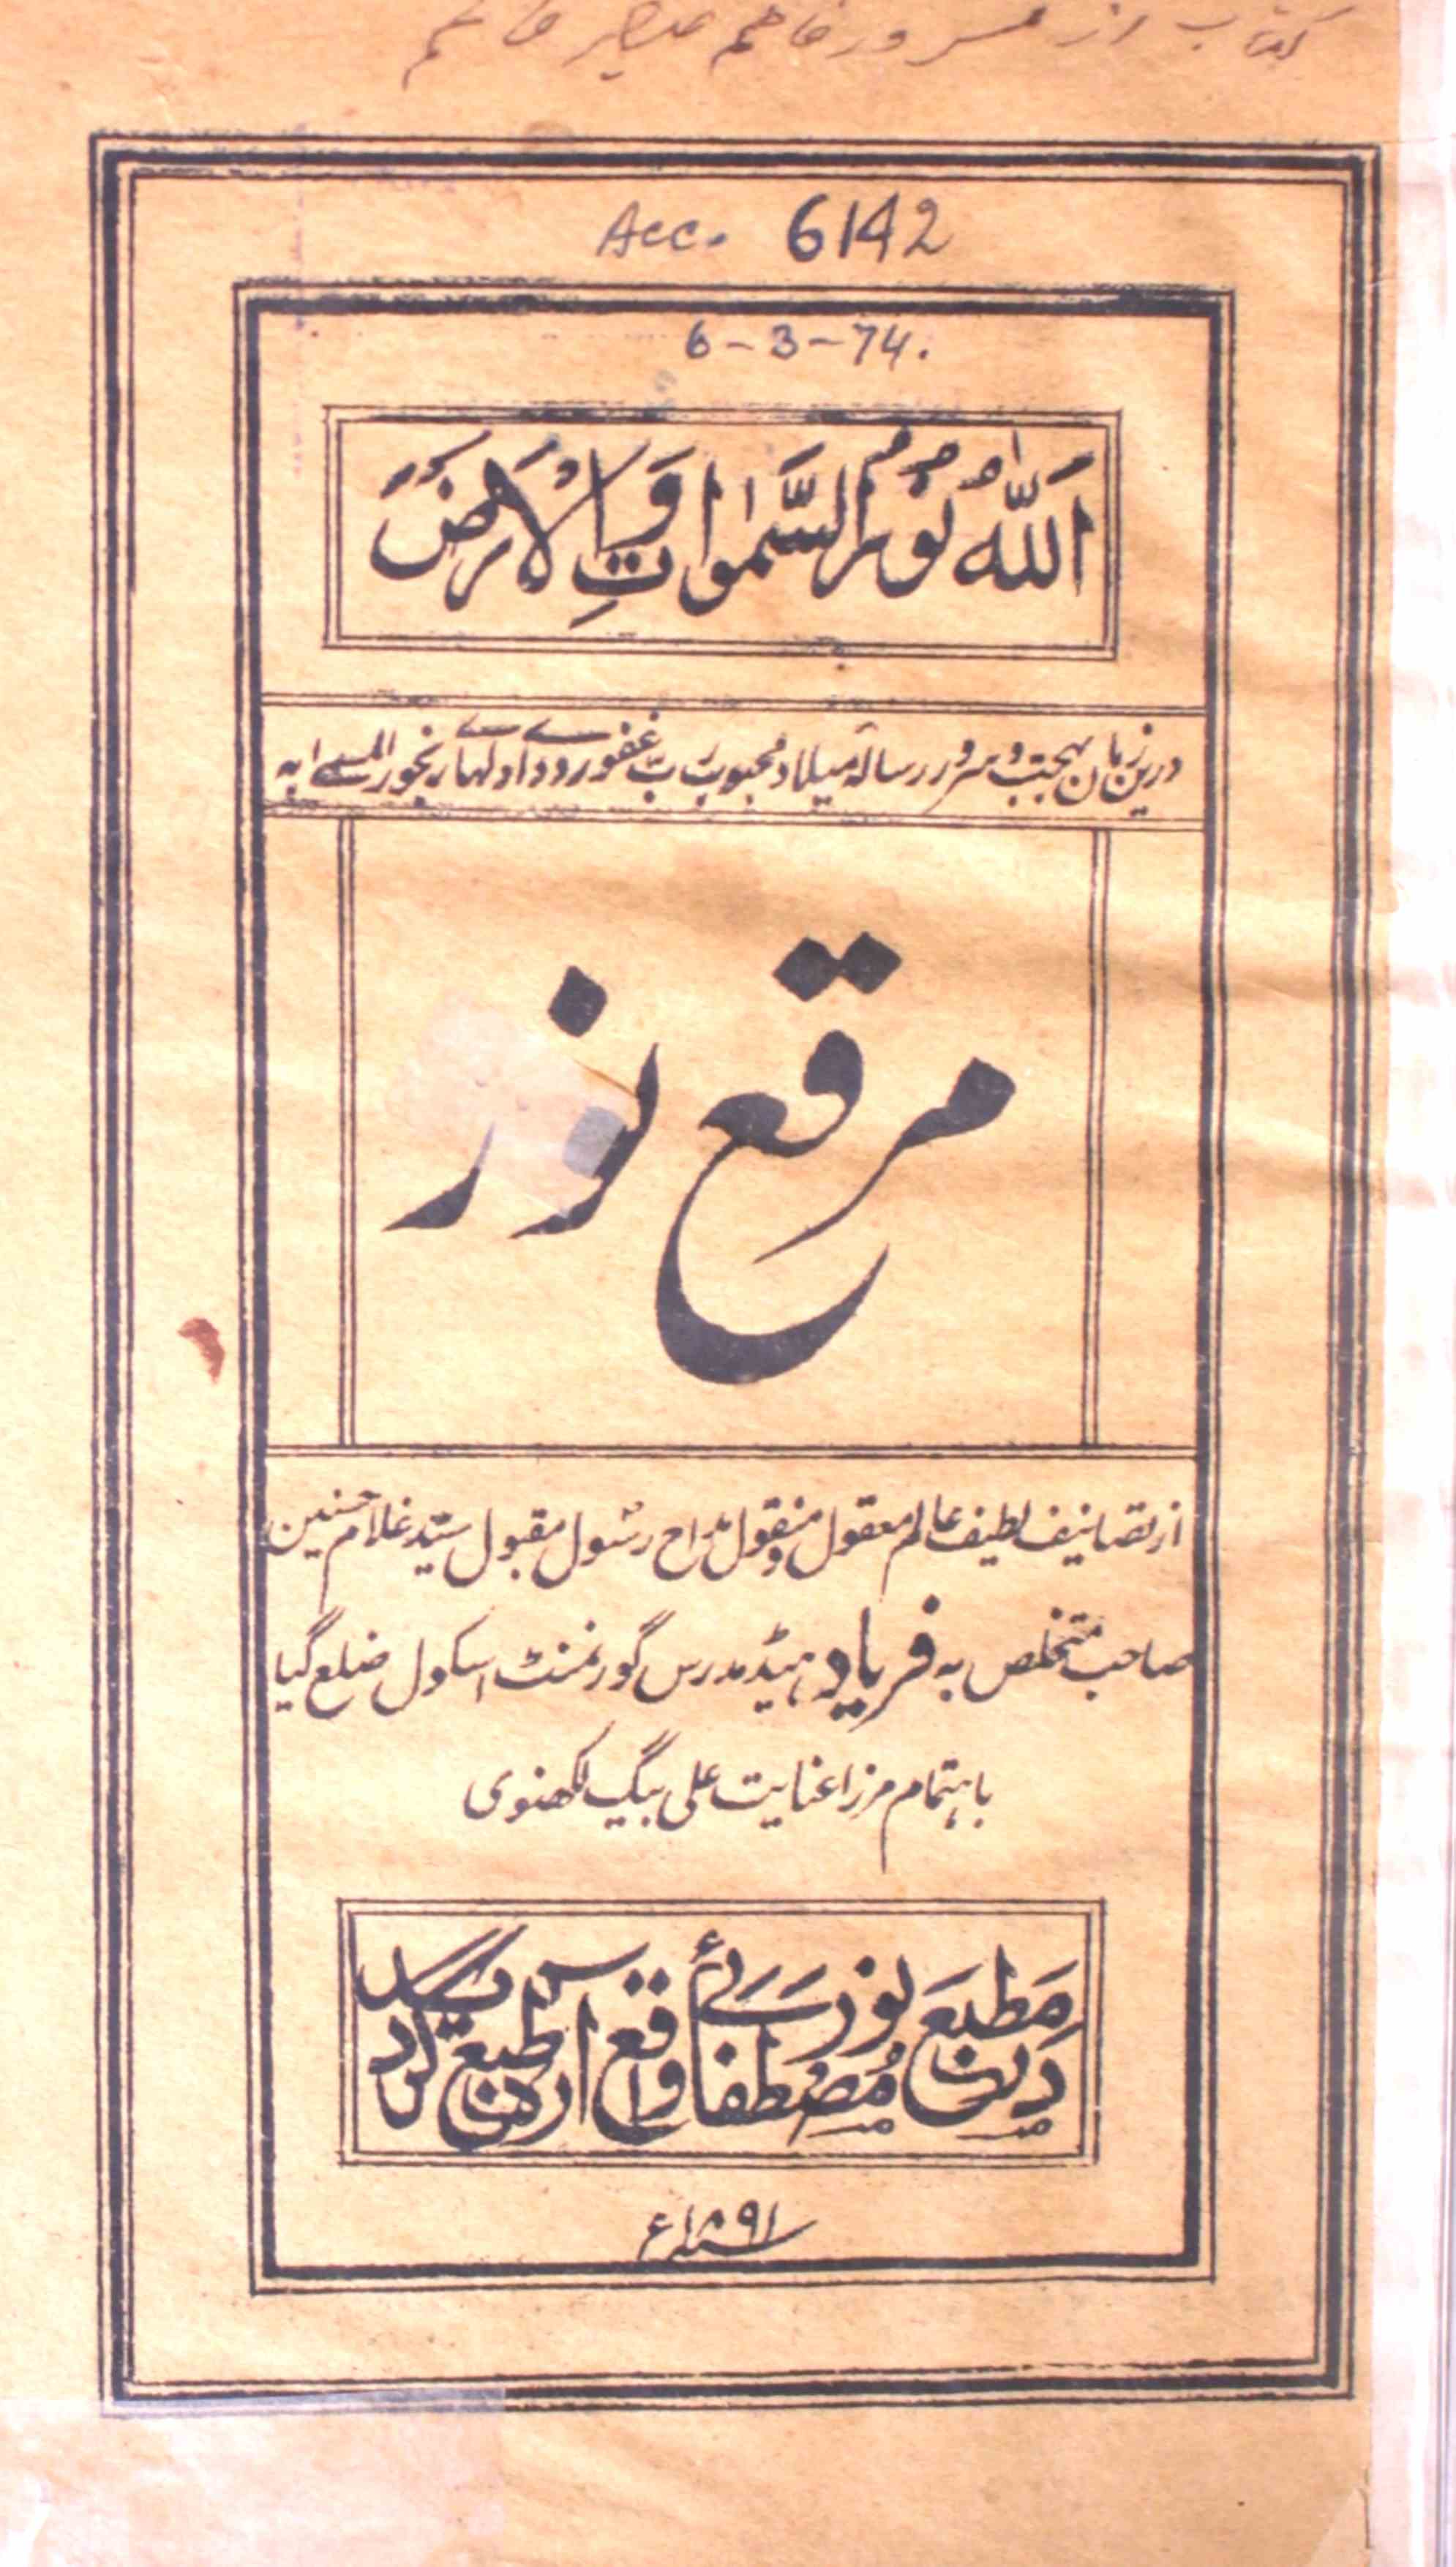 کتاب از
Acc. 6142
6-3-74.
اَللّٰهُ نُوْرُ السَّمٰوَاتِ وَالْاَرْضَ
درین زمان بهجت و سرور رسالهٔ میلاد محبوب رب غفور رودداد دلهاے رنجور المسمے به
مرقع نور
از تصانیف لطیف عالم معقول و منقول مداح رسول مقبول سید غلام حسنین
صاحب متخلص به فریاد ہیڈ مدرس گورنمنٹ اسکول ضلع گیا
باہتمام مرزا عنایت علی بیگ لکھنوی
مَطبَع نورے
دین مُصْطفا واقع آره طبع گردید
سنہ ۱۸۹۱ء